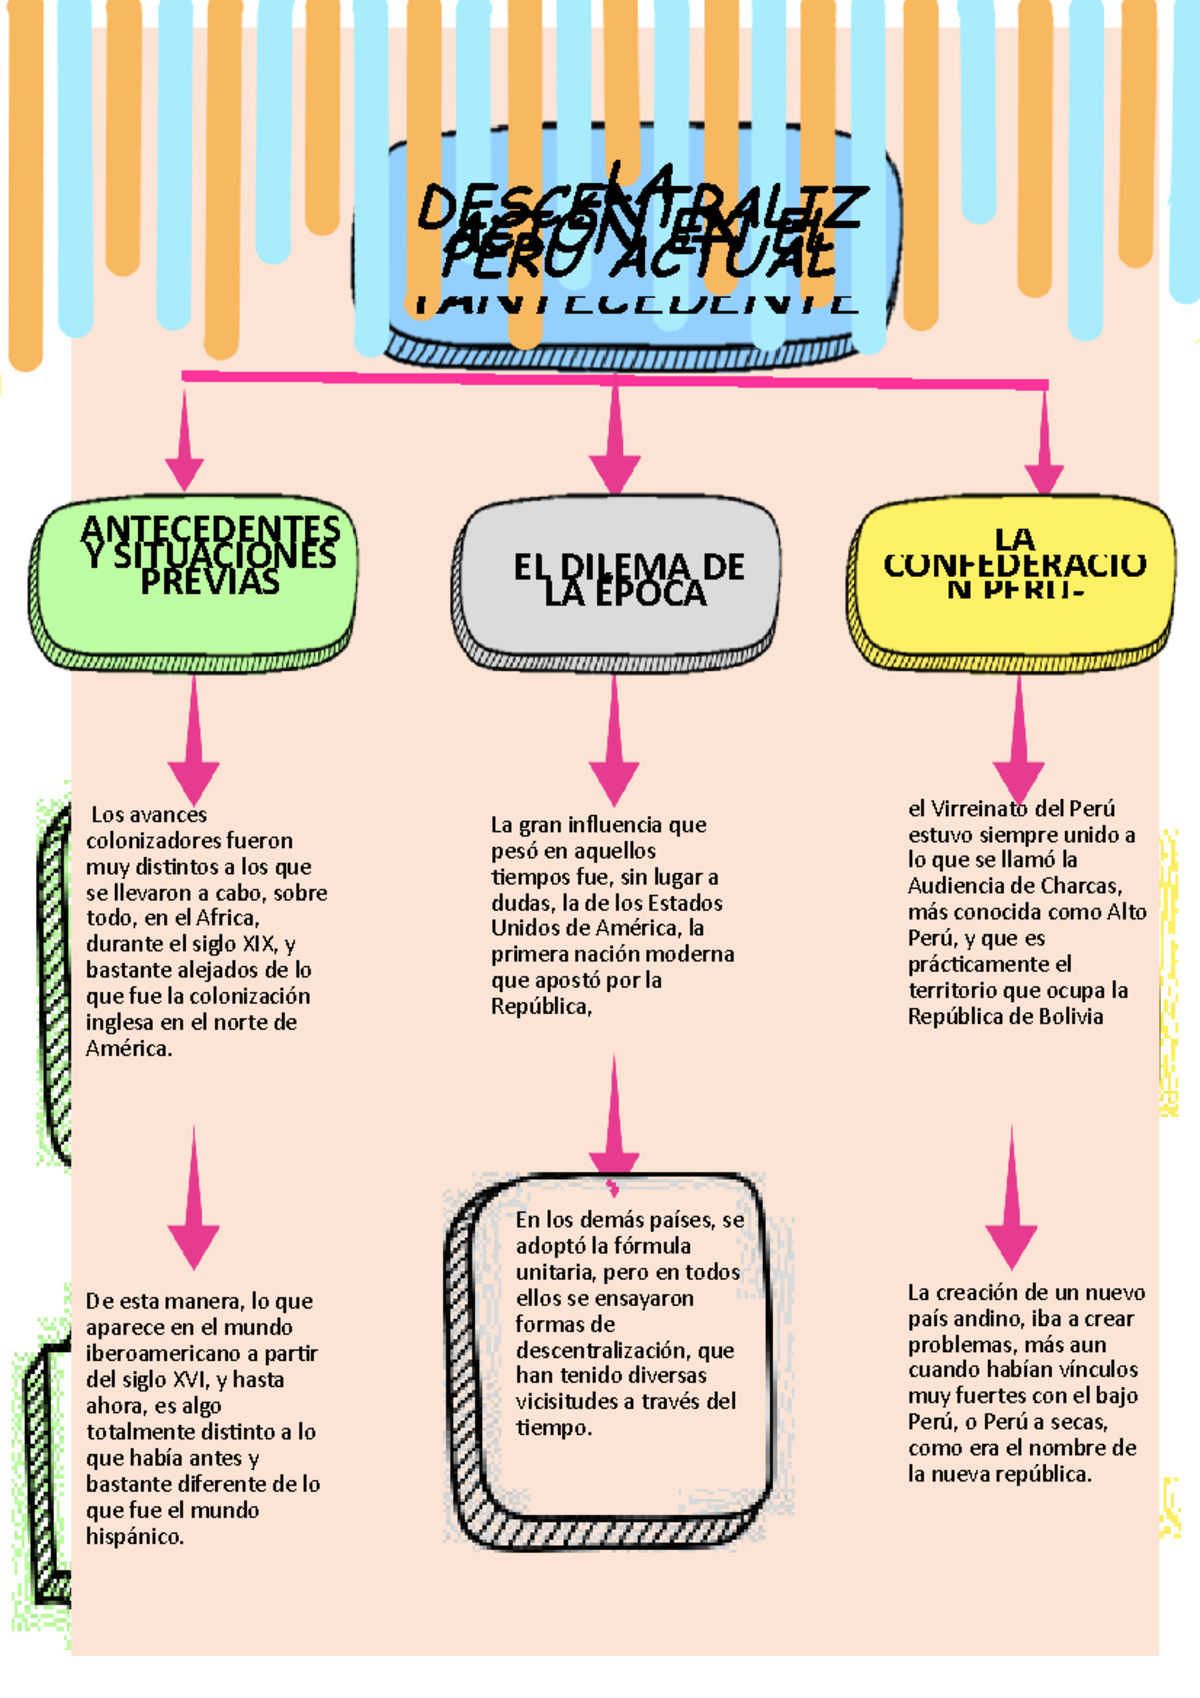 LA
DESCENTRALIZ
ACION EN EL
PERU ACTUAL
(ANTECEDENTE
ANTECEDENTES
Y SITUACIONES
PREVIAS
EL DILEMA DE
LA EPOCA
LA
CONFEDERACIO
N PERU-
Los avances
colonizadores fueron
muy distintos a los que
se llevaron a cabo, sobre
todo, en el Africa,
durante el siglo XIX, y
bastante alejados de lo
que fue la colonización
inglesa en el norte de
América.
De esta manera, lo que
aparece en el mundo
iberoamericano a partir
del siglo XVI, y hasta
ahora, es algo
totalmente distinto a lo
que había antes y
bastante diferente de lo
que fue el mundo
hispánico.
La gran influencia que
pesó en aquellos
tiempos fue, sin lugar a
dudas, la de los Estados
Unidos de América, la
primera nación moderna
que apostó por la
República,
En los demás países, se
adoptó la fórmula
unitaria, pero en todos
ellos se ensayaron
formas de
descentralización, que
han tenido diversas
vicisitudes a través del
tiempo.
el Virreinato del Perú
estuvo siempre unido a
lo que se llamó la
Audiencia de Charcas,
más conocida como Alto
Perú, y que es
prácticamente el
territorio que ocupa la
República de Bolivia
La creación de un nuevo
país andino, iba a crear
problemas, más aun
cuando habían vínculos
muy fuertes con el bajo
Perú, o Perú a secas,
como era el nombre de
la nueva república.